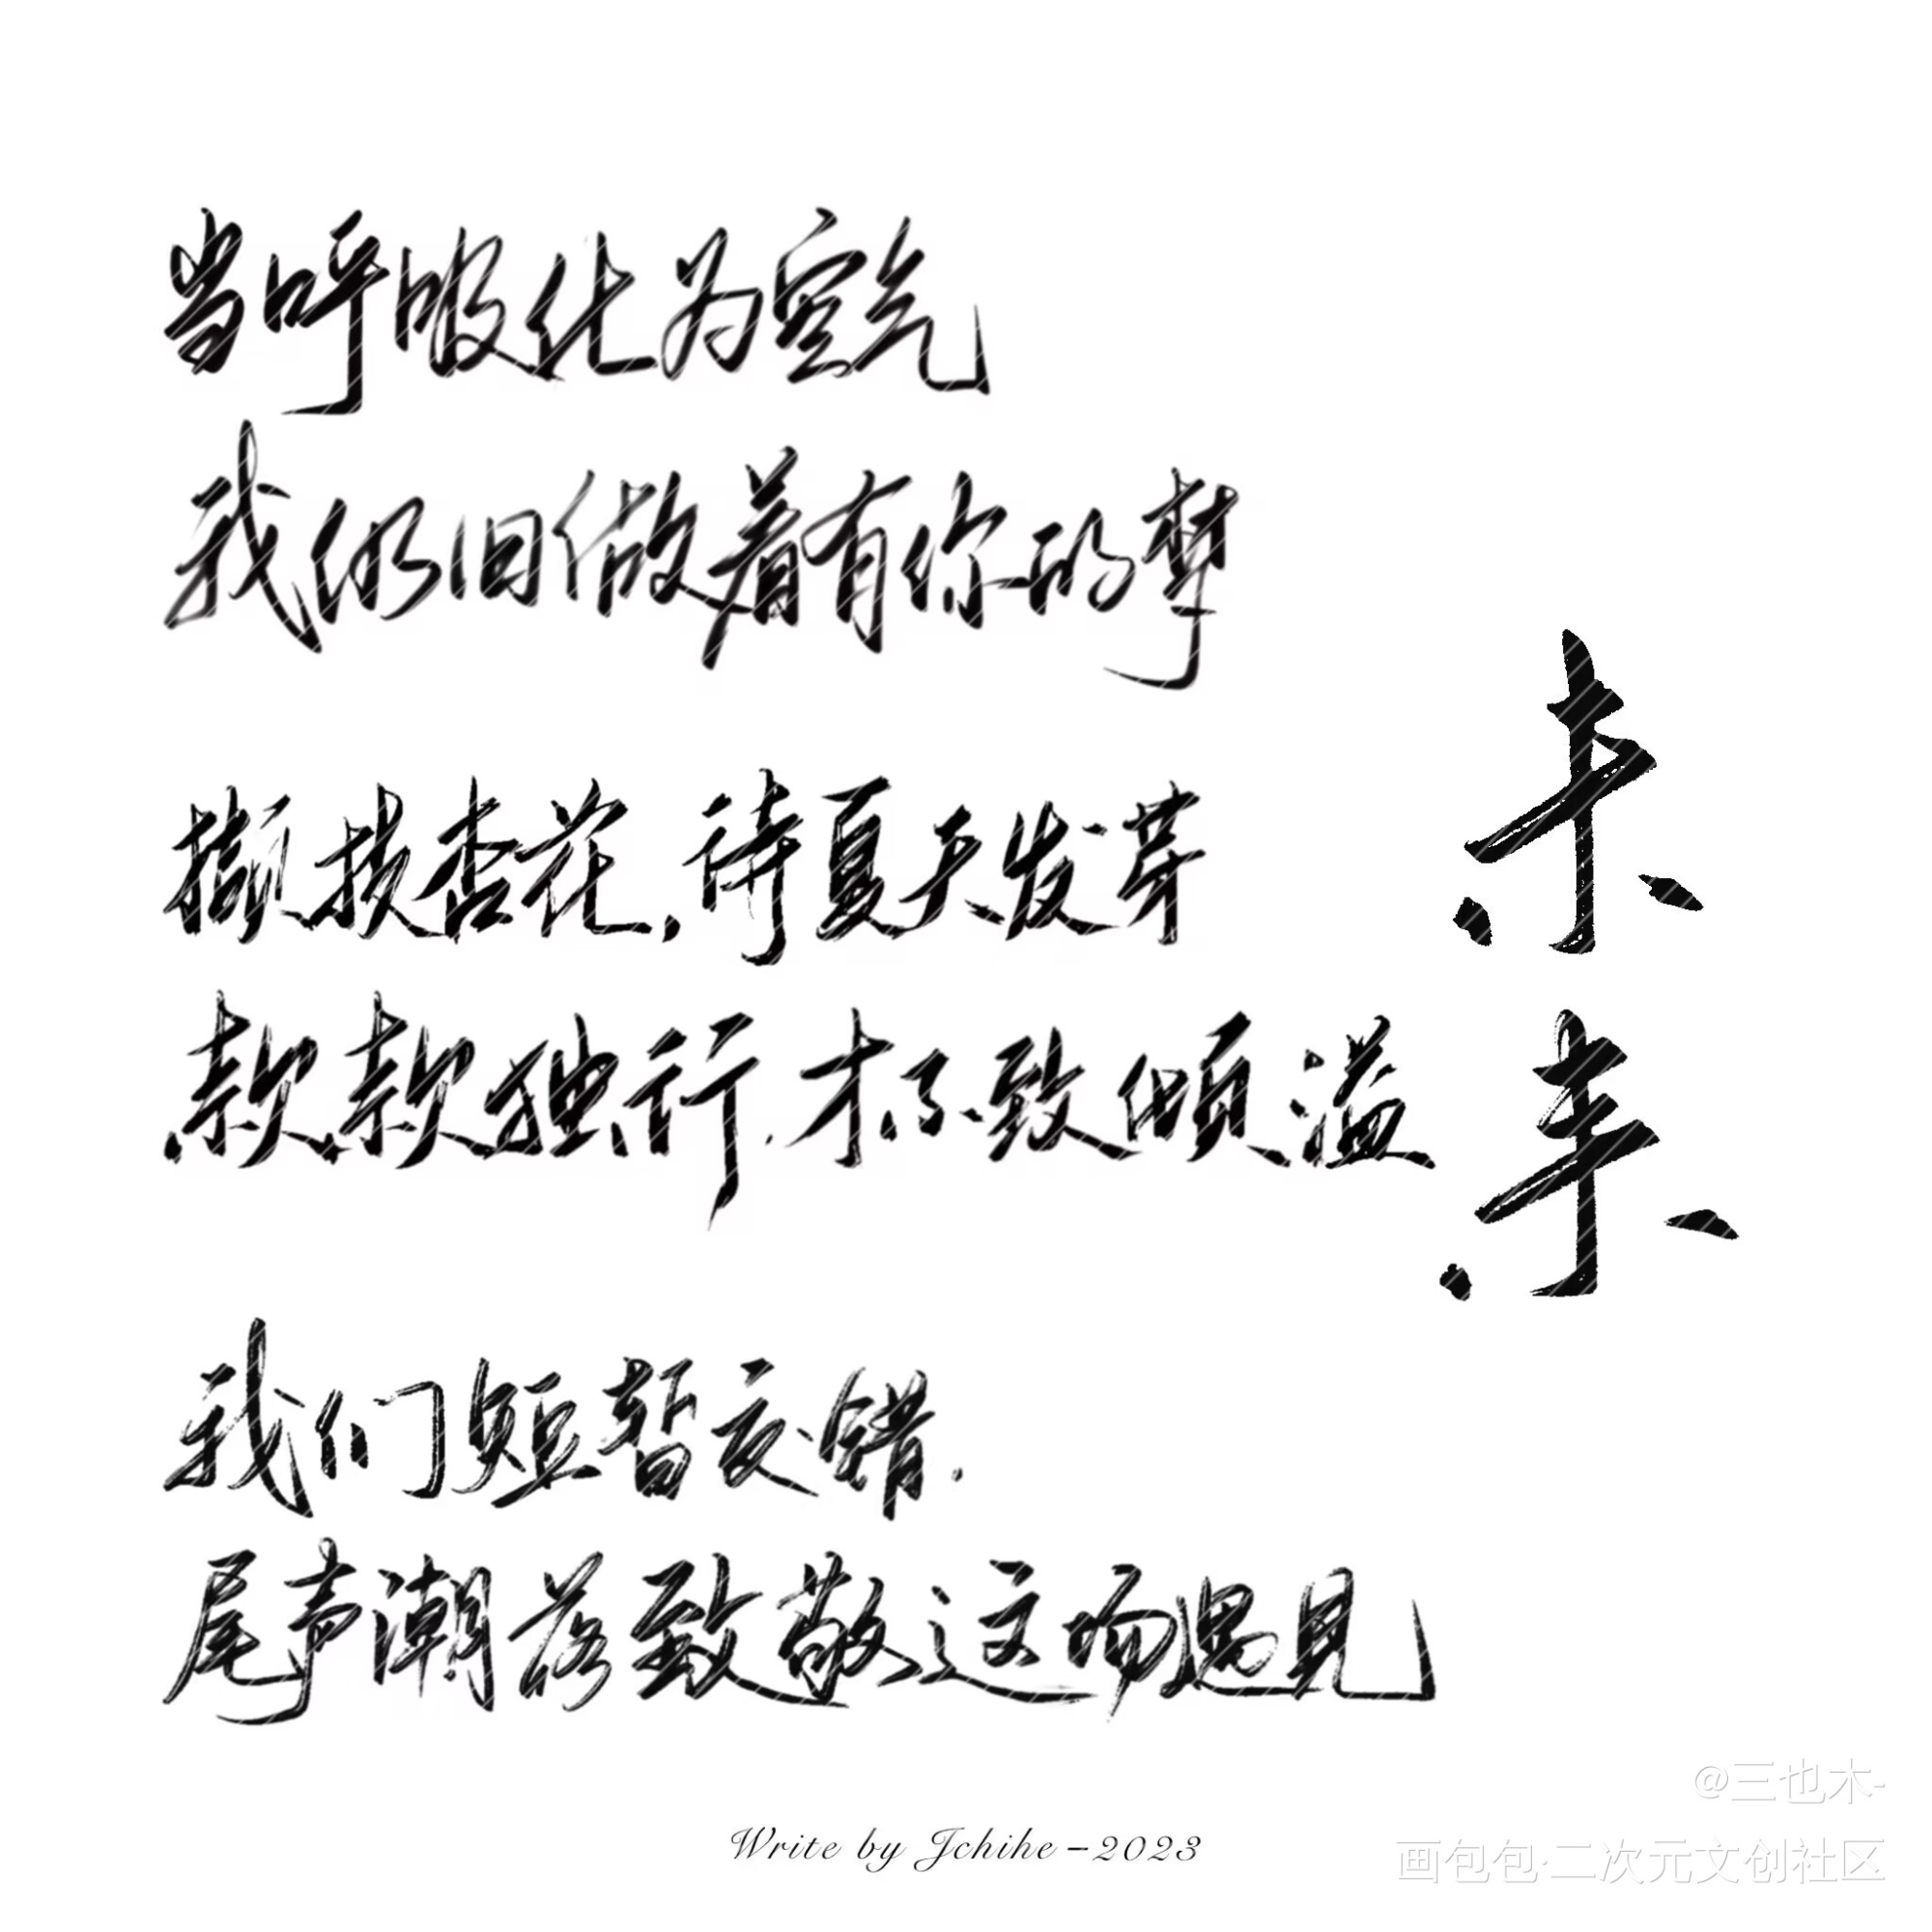 当呼吸化为空气
我仍旧做着有你的梦
撷摘杏花，待夏天发芽
款款独行.才不致倾溢
我们短暂交错.
尾声潮落致敬这场遇见
未来
Write by Jchihe-2023
@三也木-
画包包·二次元文创社区